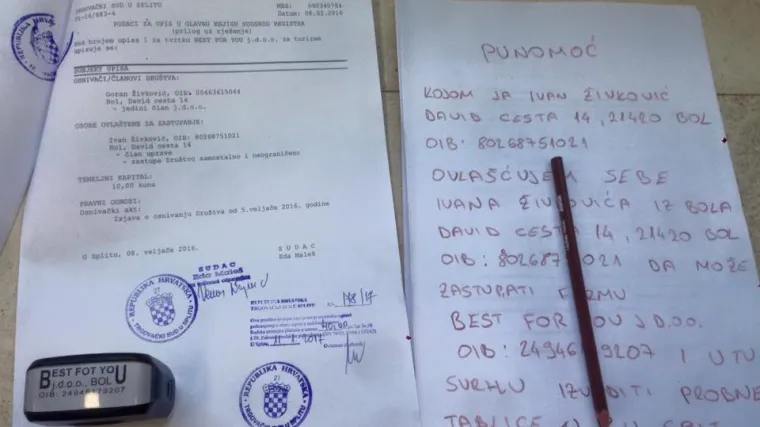 TRGOVAČKI SUD U SPLITU
MBS:
Datum: 08.02.2016
PODACI ZA UPIS U GLAVNU KNJIGU SUDSKOG REGISTRA
(prilog uz rješenje)
Pod brojem upisa 1 za tvrtku BEST FOR YOU j.d.o.o. za turizam
upisuje se:
SUBJEKT UPISA
OSNIVAČI/ČLANOVI DRUŠTVA:
Goran Živković, OIB:
Bol, David cesta 14
- jedini član j.d.o.o.
OSOBE OVLAŠTENE ZA ZASTUPANJE:
Ivan Živković, OIB: 80268751021
Bol, David cesta 14
- član uprave
- zastupa Društvo samostalno i neograničeno
TEMELJNI KAPITAL:
10,00 kuna
PRAVNI ODNOSI:
Osnivački akt:
Izjava o osnivanju Društva od 5.veljače 2016. godine
U Splitu, 08. veljače 2016.
S U D A C
Eda Maleš
S U D A C
Eda Maleš
REPUBLIKA HRVATSKA
TRGOVAČKI SUD U SPLITU
REPUBLIKA HRVATSKA
2017
REPUBLIKA HRVATSKA
TRGOVAČKI SUD U SPLITU
BEST FOT YOU
j.d.o.o., BOL
OIB:
PUNOMOĆ
KOJOM JA IVAN ŽIVKOVIĆ
DAVID CESTA 14, 21420 BOL
OIB: 80268751021
OVLAŠĆUJEM SEBE
IVANA ŽIVKOVIĆA IZ BOLA
DAVID CESTA 14, 21420 BOL
OIB: 802687 021 DA MOŽE
ZASTUPATI FIRMU
BEST FOR YOU J.D.O.O.
OIB: 24946 9207 I U TU
SVRHU IZVADITI PROBNE
TABLICE